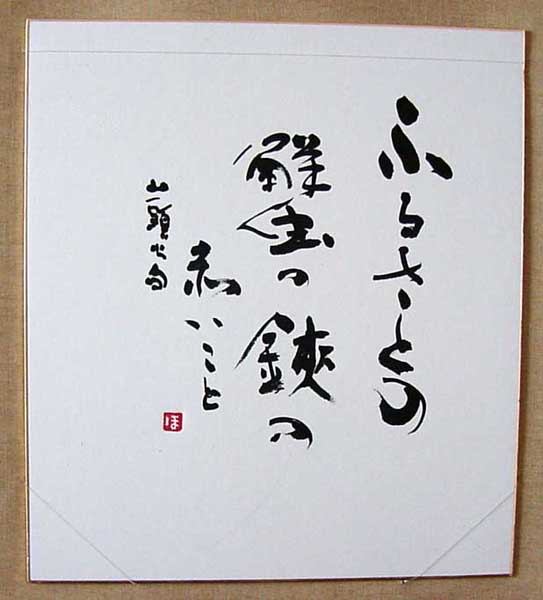 ふるさとの
蟹の鋏の
赤いこと
山頭火句
ほ